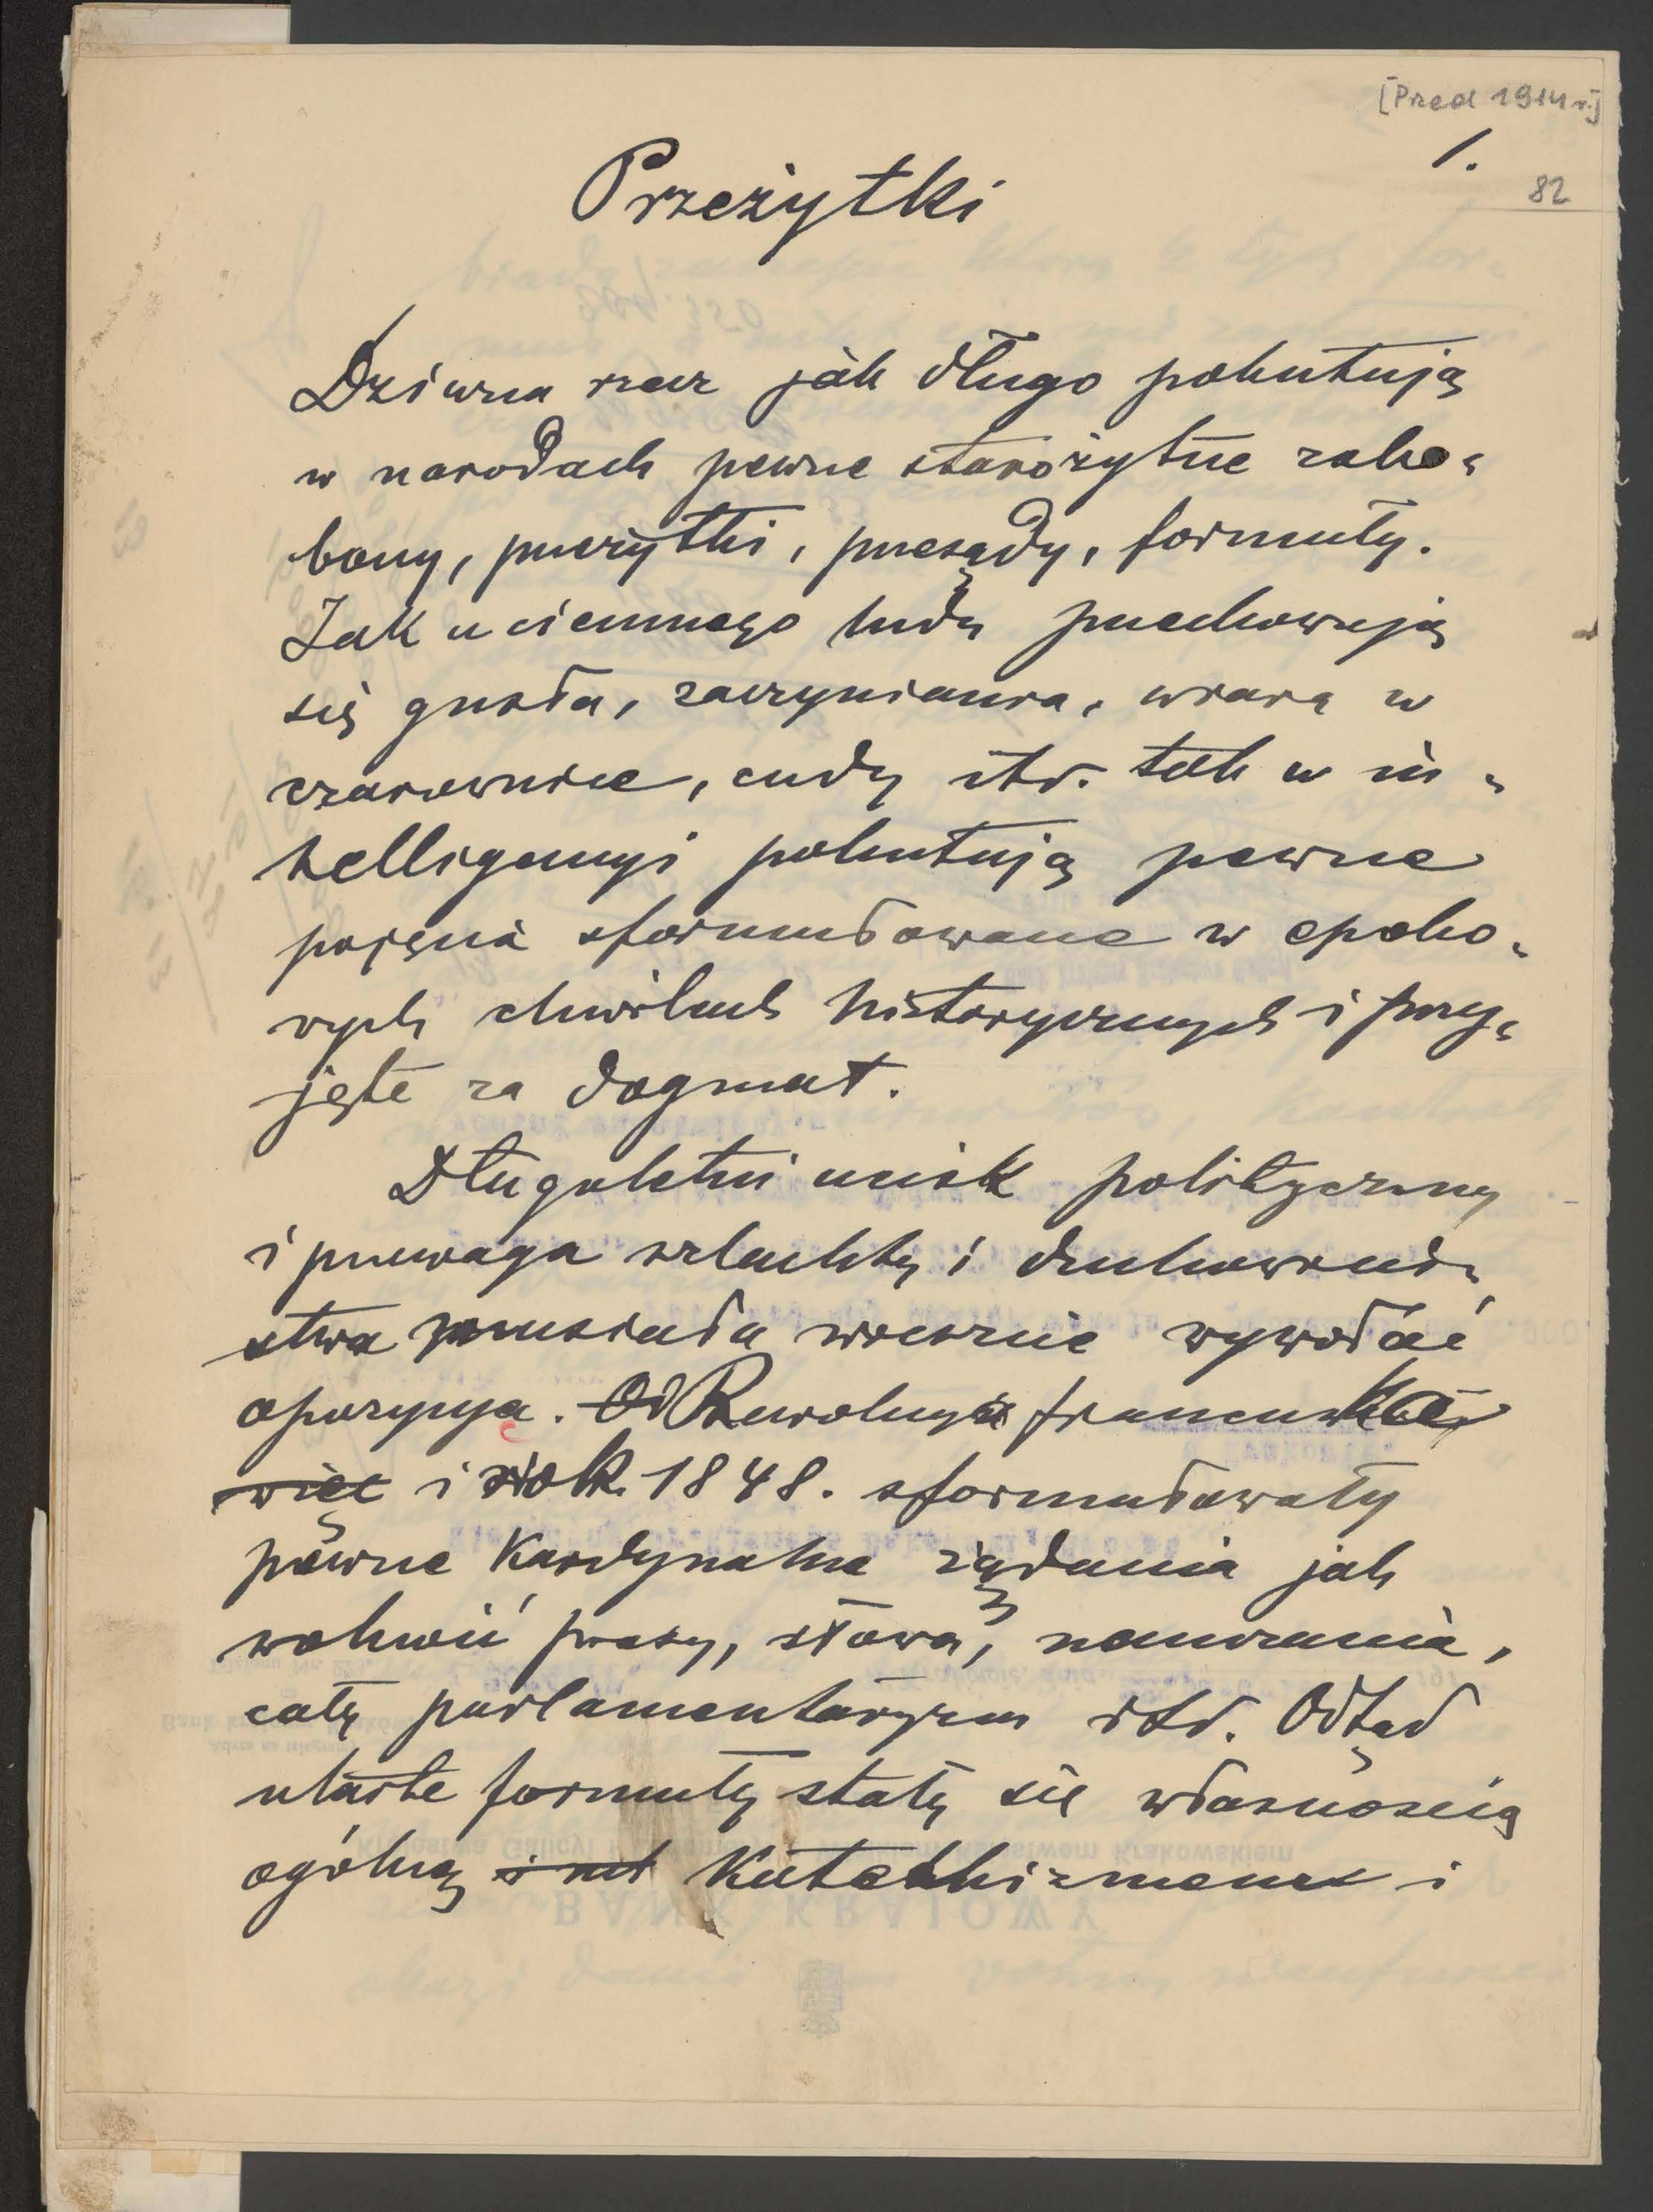 [Przed 1914 r.]
1.
82
Przeżytki
Dziwna rzecz jak długo pokutują
w narodach pewne starożytne zabo-
bony, przeżytki, przesądy, formuły.
Jak u ciemnego ludu przechowują
się gusła, zaczyniania, wiara w
czarownice, cudy itd. tak w in-
telligencyi pokutują pewne
pojęcia sformułowane w epoko-
wych chwilach historycznych i przy-
jęte za dogmat.
Długoletni ucisk polityczny
i przewaga szlachty i duchowień-
stwa musiała wreszcie wywołać
opozycyę. Od Rewolucya francuska
więc i rok 1848. sformułowały
pewne kardynalne żądania jak
wolność prasy, słowa, nauczania,
cały parlamentaryzm itd. Odtąd
utarte formuły stały się własnością
ogólną i Katechizmem i
BANK KRAJOWY